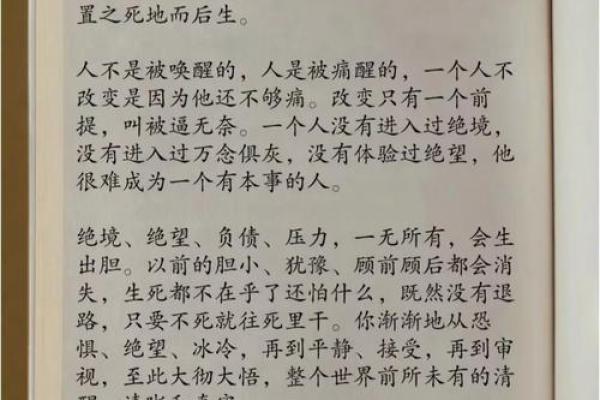 置之死地而后生。
人不是被唤醒的，人是被痛醒的，一个人不
改变是因为他还不够痛。改变只有一个前
提，叫被逼无奈。一个人没有进入过绝境，
没有进入过万念俱灰，没有体验过绝望，他
很难成为一个有本事的人。
绝境、绝望、负债、压力，一无所有，会生
出胆。以前的胆小、犹豫、顾前顾后都会消
失，生死都不在乎了还怕什么，既然没有退
路，只要不死就往死里干。你渐渐地从恐
惧、绝望、冰冷，再到平静、接受，再到审
视，至此大彻大悟，整个世界前所未有的清